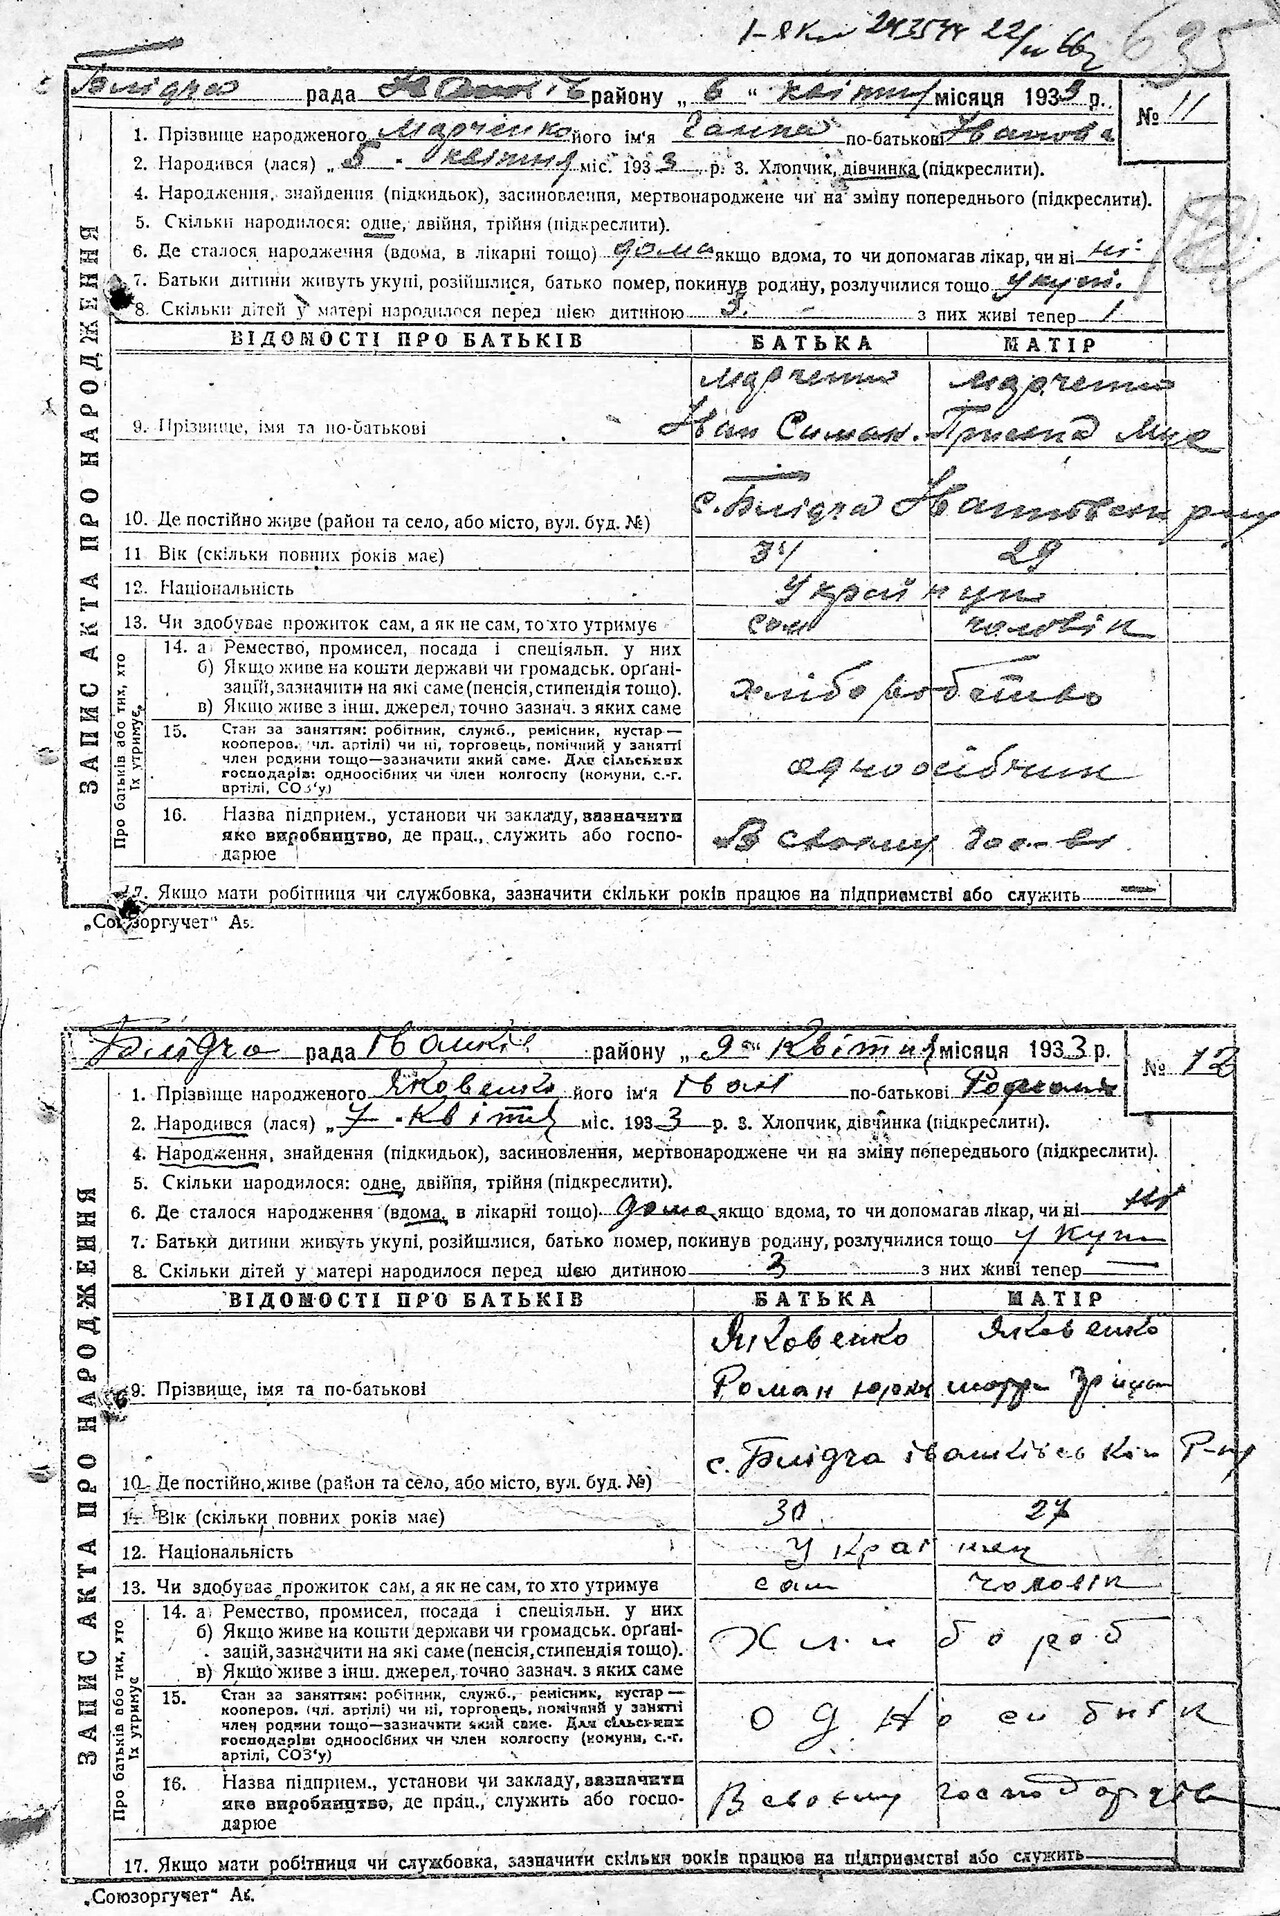 635
Блідча рада Іванків району „ 6 “ квітня місяця 1933 р.
№ 11
1. Прізвище народженого Марченко його ім'я Ганна по-батькові Іванова
2. Народився (лася) „ 5 - квітня міс. 1933 р. 3. Хлопчик, дівчинка (підкреслити).
4. Народження, знайдення (підкидьок), засиновлення, мертвонароджене чи на зміну попереднього (підкреслити).
5. Скільки народилося: одне, двійня, трійня (підкреслити).
6. Де сталося народження (вдома, в лікарні тощо) дома якщо вдома, то чи допомагав лікар, чи ні ні
7. Батьки дитини живуть укупі, розійшлися, батько помер, покинув родину, розлучилися тощо укупі.
8. Скільки дітей у матері народилося перед цією дитиною 3. - з них живі тепер 1
ЗАПИС АКТА ПРО НАРОДЖЕННЯ
ВІДОМОСТІ ПРО БАТЬКІВ БАТЬКА МАТІР
Марченко Марченко
9. Прізвище, імя та по-батькові Іван Симон.
10. Де постійно живе (район та село, або місто, вул. буд. №) с. Бліцча Іванківськ р-ну
11 Вік (скільки повних років має) 31 29
12. Національність Українци
13. Чи здобуває прожиток сам, а як не сам, то хто утримує сам чоловік
Про батьків або тих, хто їх утримує
14. а) Ремество, промисел, посада і спеціяльн. у них
б) Якщо живе на кошти держави чи громадськ. органі-
зацій, зазначити на які саме (пенсія, стипендія тощо).
в) Якщо живе з інш. джерел, точно зазнач. з яких саме
хліборобство
15. Стан за заняттям: робітник, служб., ремісник, кустар—
кооперов. (чл. артілі) чи ні, торговець, помічний у занятті
член родини тощо—зазначити який саме. Для сільських
господарів: одноосібних чи член колгоспу (комуни, с.-г.
артілі, СОЗ'у)
одноосібник
16. Назва підприєм., установи чи закладу, зазначити
яке виробництво, де прац., служить або госпо-
дарює
В своєму гос-ві
17. Якщо мати робітниця чи службовка, зазначити скільки років працює на підприємстві або служить
„Союзоргучет“ А5.
Блідча рада Іванків району „ 9 “ Квітня місяця 1933 р.
№ 12
1. Прізвище народженого Яковенко його ім'я Іван по-батькові Романів
2. Народився (лася) „ 7 - Квітня міс. 1933 р. 3. Хлопчик, дівчинка (підкреслити).
4. Народження, знайдення (підкидьок), засиновлення, мертвонароджене чи на зміну попереднього (підкреслити).
5. Скільки народилося: одне, двійня, трійня (підкреслити).
6. Де сталося народження (вдома, в лікарні тощо) дома якщо вдома, то чи допомагав лікар, чи ні ні
7. Батьки дитини живуть укупі, розійшлися, батько помер, покинув родину, розлучилися тощо у купі
8. Скільки дітей у матері народилося перед цією дитиною 3 з них живі тепер —
ЗАПИС АКТА ПРО НАРОДЖЕННЯ
ВІДОМОСТІ ПРО БАТЬКІВ БАТЬКА МАТІР
Яковенко Яковенко
9. Прізвище, імя та по-батькові Роман
10. Де постійно живе (район та село, або місто, вул. буд. №) с. Блідча іванківській р-ну
11. Вік (скільки повних років має) 30 27
12. Національність
13. Чи здобуває прожиток сам, а як не сам, то хто утримує сам чоловік
Про батьків або тих, хто їх утримує
14. а) Ремество, промисел, посада і спеціяльн. у них
б) Якщо живе на кошти держави чи громадськ. органі-
зацій, зазначити на які саме (пенсія, стипендія тощо).
в) Якщо живе з інш. джерел, точно зазнач. з яких саме
Хлибороб
15. Стан за заняттям: робітник, служб., ремісник, кустар—
кооперов. (чл. артілі) чи ні, торговець, помічний у занятті
член родини тощо—зазначити який саме. Для сільських
господарів: одноосібних чи член колгоспу (комуни, с.-г.
артілі, СОЗ'у)
одноосибник
16. Назва підприєм., установи чи закладу, зазначити
яке виробництво, де прац., служить або госпо-
дарює
В своєму господарстві
17. Якщо мати робітниця чи службовка, зазначити скільки років працює на підприємстві або служить
„Союзоргучет“ А5.